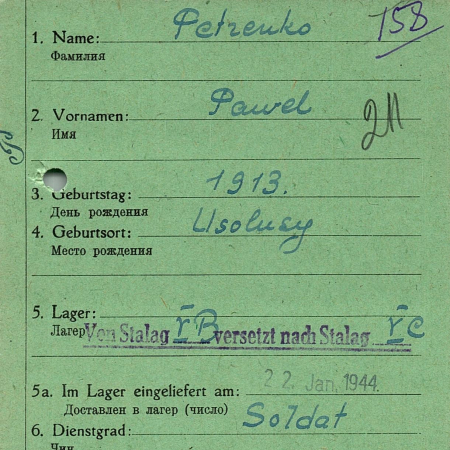 158
1. Name: Petrenko
Фамилия
2. Vornamen: Pawel
Имя
211
3. Geburtstag: 1913.
День рождения
4. Geburtsort: Usolusy
Место рождения
5. Lager:
Лагерь Von Stalag VB versetzt nach Stalag VC
5a. Im Lager eingeliefert am: 22. Jan. 1944.
Доставлен в лагерь (число)
6. Dienstgrad: Soldat
Чин